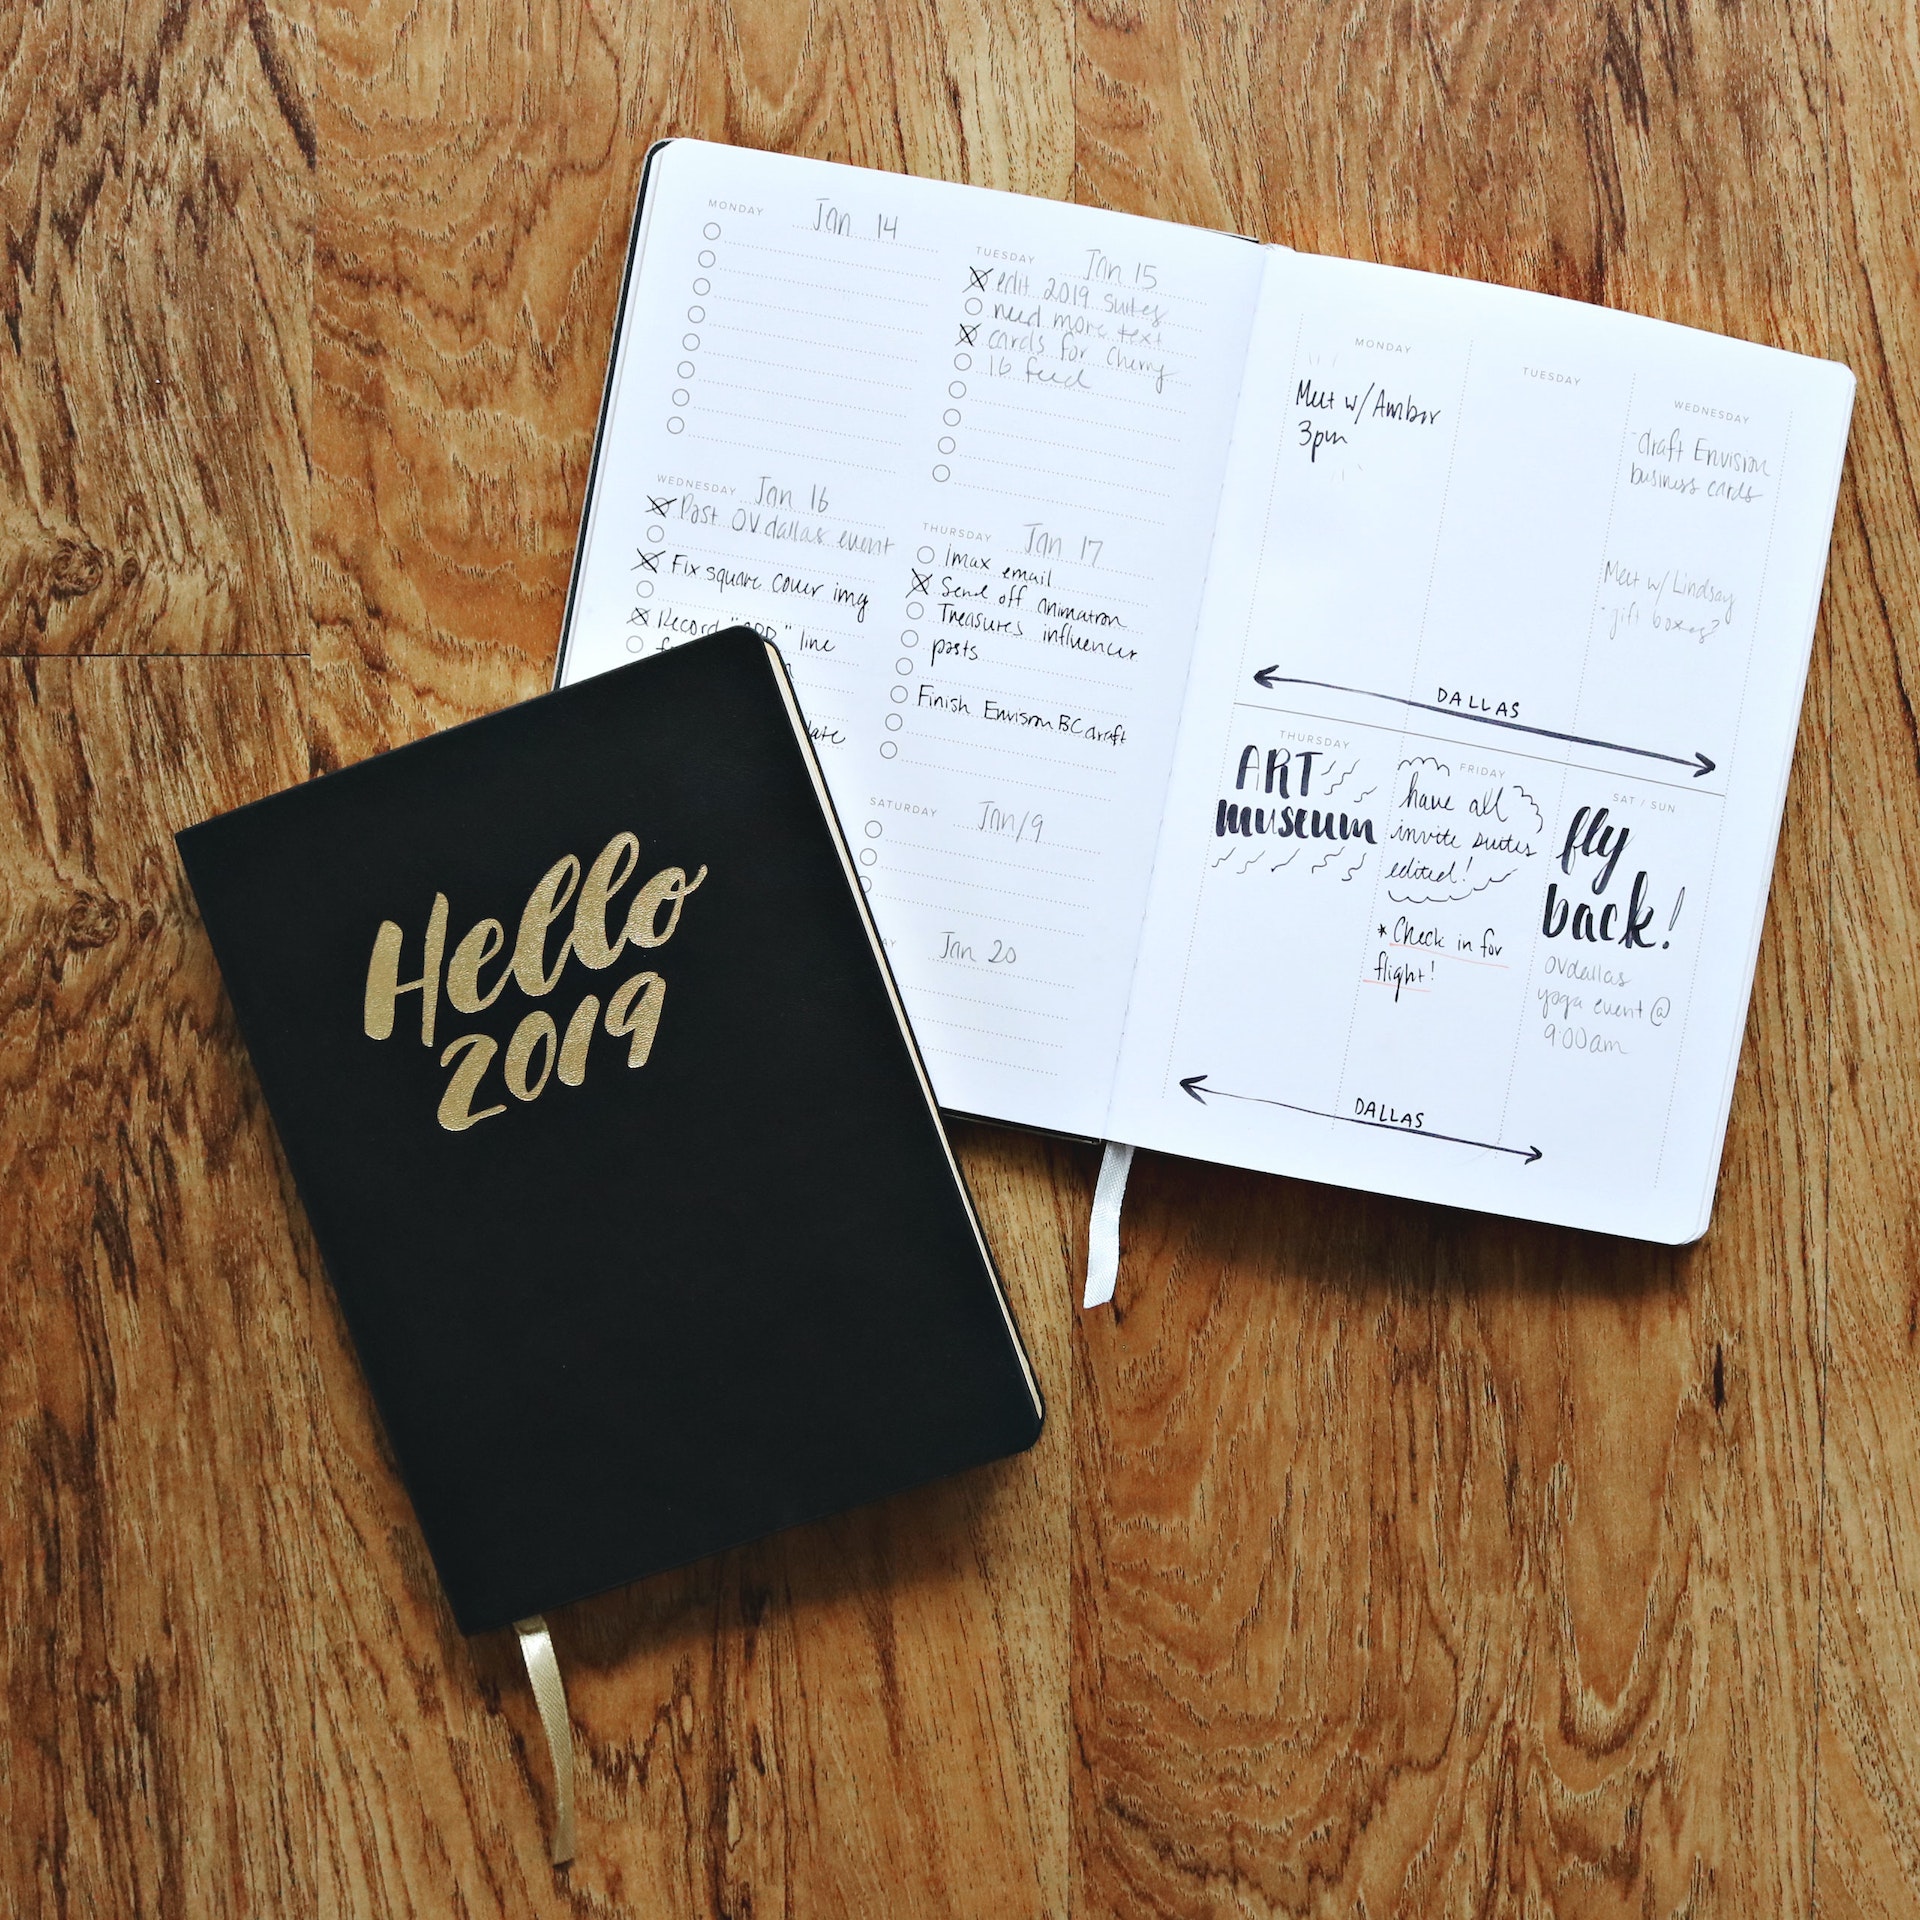 MONDAY Jan 14
TUESDAY Jan 15
edit 2019 suites
need more text
cards for cherry
16 feed
WEDNESDAY Jan 16
Post OVdallas event
Fix square cover img
Record line
THURSDAY Jan 17
imax email
Send off animatron
Treasures influencer
posts
Finish Envision BC draft
SATURDAY Jan 19
Jan 20
MONDAY
Meet w/ Amber
3pm
TUESDAY
WEDNESDAY
-draft Envision
business cards
Meet w/ Lindsay
gift boxes?
DALLAS
THURSDAY
ART
museum
FRIDAY
have all
invite suites
edited!
* Check in for
flight!
SAT / SUN
fly
back!
OVdallas
yoga event @
9:00am
DALLAS
Hello
2019